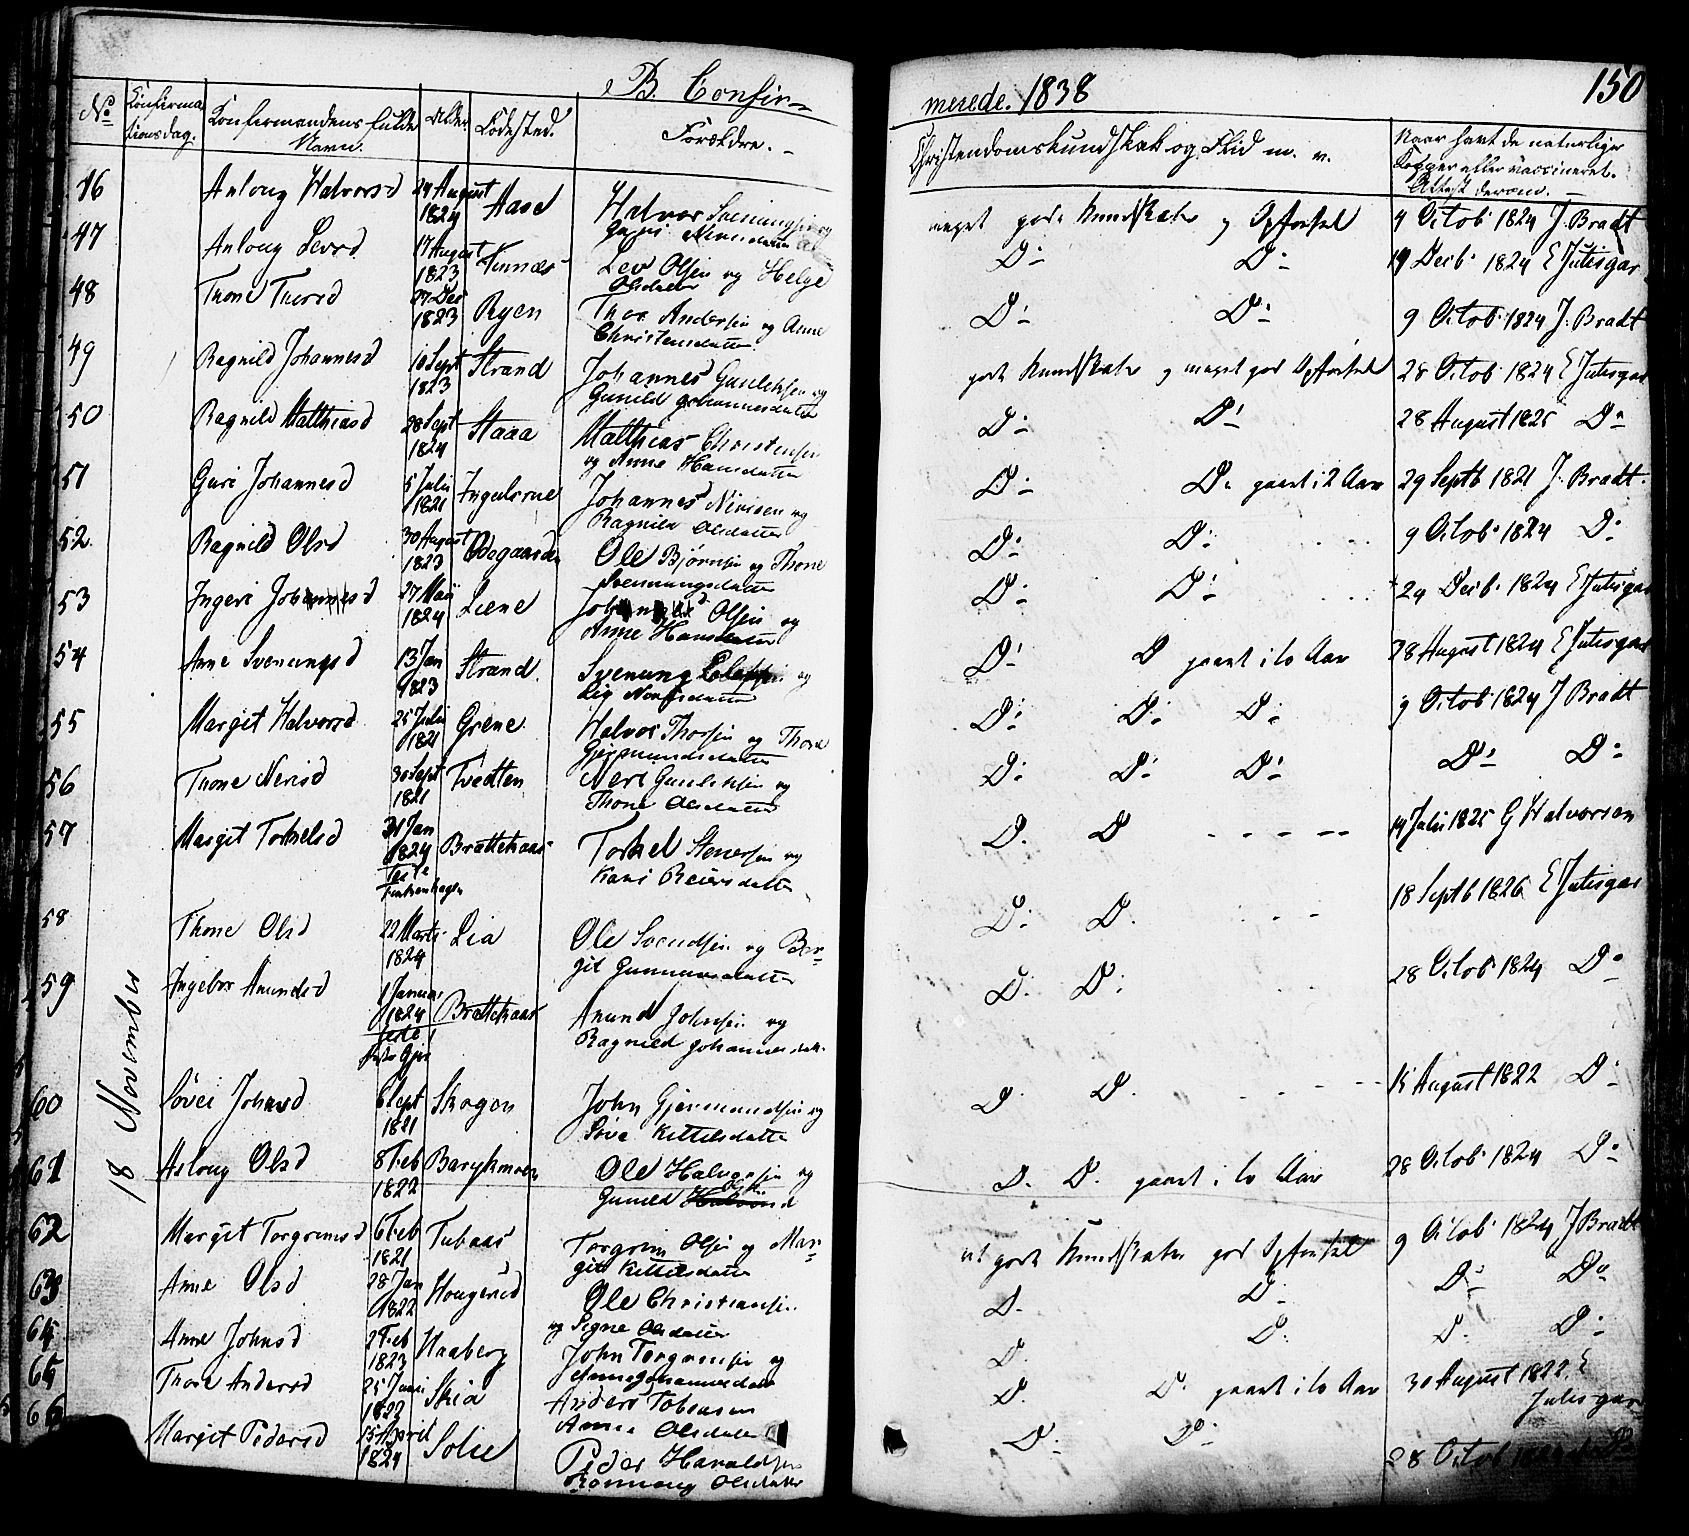 B. Confir-
merede. 1838
150
No
Confirma
tionsdag.
Confirmandens fulde
Navn.
Alder.
Födested.
Forældre.
Christendomskundskab og Flid m. v.
Naar havt de naturlige
Kopper eller vaccineret.
Attest derom.
46 Asloug Halvorsd 24 August Aase Halvor Svenungsen og meget gode Kundskaber og Opførsel 4 Octob. 1824 J. Bradt
1824 Nirisdatter
47 Asloug Levsd 17 August Lev Olsen og Helge D: D: 19 Decb. 1824 E Jutisgar
1823 Olsdatter
48 Thone Thorsd 27 Dec Ryen Thor Andersen og Anne D: D: 9 Octob. 1824 J. Bradt
1823 Christensdatter
49 Ragnild Johannesd 10 Sept Strand Johannes Gunleksen og gode Kundskaber og meget god Opførsel 28 Octob. 1824 E Jutisgar
1823 Gunild Johannesdatter
50 Ragnild Matthiasd 28 Sept Staaa Matthias Christensen D: D: 28 August 1825 Do
1824 og Anne Hansdatter
51 Guri Johannesd 5 Julii Ingulsrue Johannes Nirisen og D: D. gaaet i 2 Aar 29 Septb 1821 J. Bradt.
1821 Ragnild Olsdatter
52 Ragnild Olsd 30 August Odegaarden Ole Bjørnsen og Thone D: D: 9 Octob. 1824 D:
1823 Svenungsdatter
53 Ingeri Johannesd 27 Maii Liene Olsen og D: D: 24 Decb. 1824 E Jutisgar
1824 Anne Hansdatter
54 Anne Svenungsd 13 Jan Strand. Svenung og D: D gaaet i to Aar 28 August 1824 E Jutisgar
1823 Lig
55 Margit Halvorsd 25 Julii Grene Halvor Thorsen og Thone D: D: D: 9 Octob 1824 J Bradt
1821 Gjermundsdatter
56 Thone Nerisd 30 Sept Tvedten Neri Gunleksen og D: D: D: D: D:
1821 Thone Olsdatter
57 Margit Torkelsd 31 Jan Brattekaas Torkel Stenersen og D. D 14 Julii 1825 G Halvorsen
1824 Kari Reiersdatter
58 Thone Olsd 22 Marts Lia Ole Svendsen og Ber- D: D. 18 Septb 1826 E Jutisgar
1824 git Gunnarsdatter
59 Ingebor Amundsd 1 Januar Brattekaas Amund Johnsen og D. D: 28 Octob. 1824 D:
1824 Ragnild Johannesdatt.
18 November
60 Sövei Johnsd 6 Sept Skogen John Gjermundsen og D. D. 15 August 1822 D:
1821 Sove Kittelsdatter
61 Asloug Olsd 8 Feb Ole Halvorsen og D. D. gaaet i to Aar 28 Octob. 1824 D:
1822 Gunild
62 Margit Torgrimsd 6 Feb Tubaas Torgrim Olsen og Mar- gode Kundskaber god Opførsel 9 Octob. 1824 J Bradt
1821 git Kittelsdatter
63 Anne Olsd 28 Jan Hougerud Ole Christiansen D. D. D: Do
1822 og Signe Olsdatter
64 Anne Johnsd 2 Feb Haaberg John Torgrimsen og D. D: D. D:
1823 Anne Johannesdatter
65 Thone Andersd 25 Junii Skia Anders Tobiasen D. D. gaaet i to Aar 30 August 1822 E
1822 Anne Olsdatter Jutisgar
66 Margit Pedersd 15 April Solie Peder Haraldsen D: D: 28 Octob
1824 Olsdatter